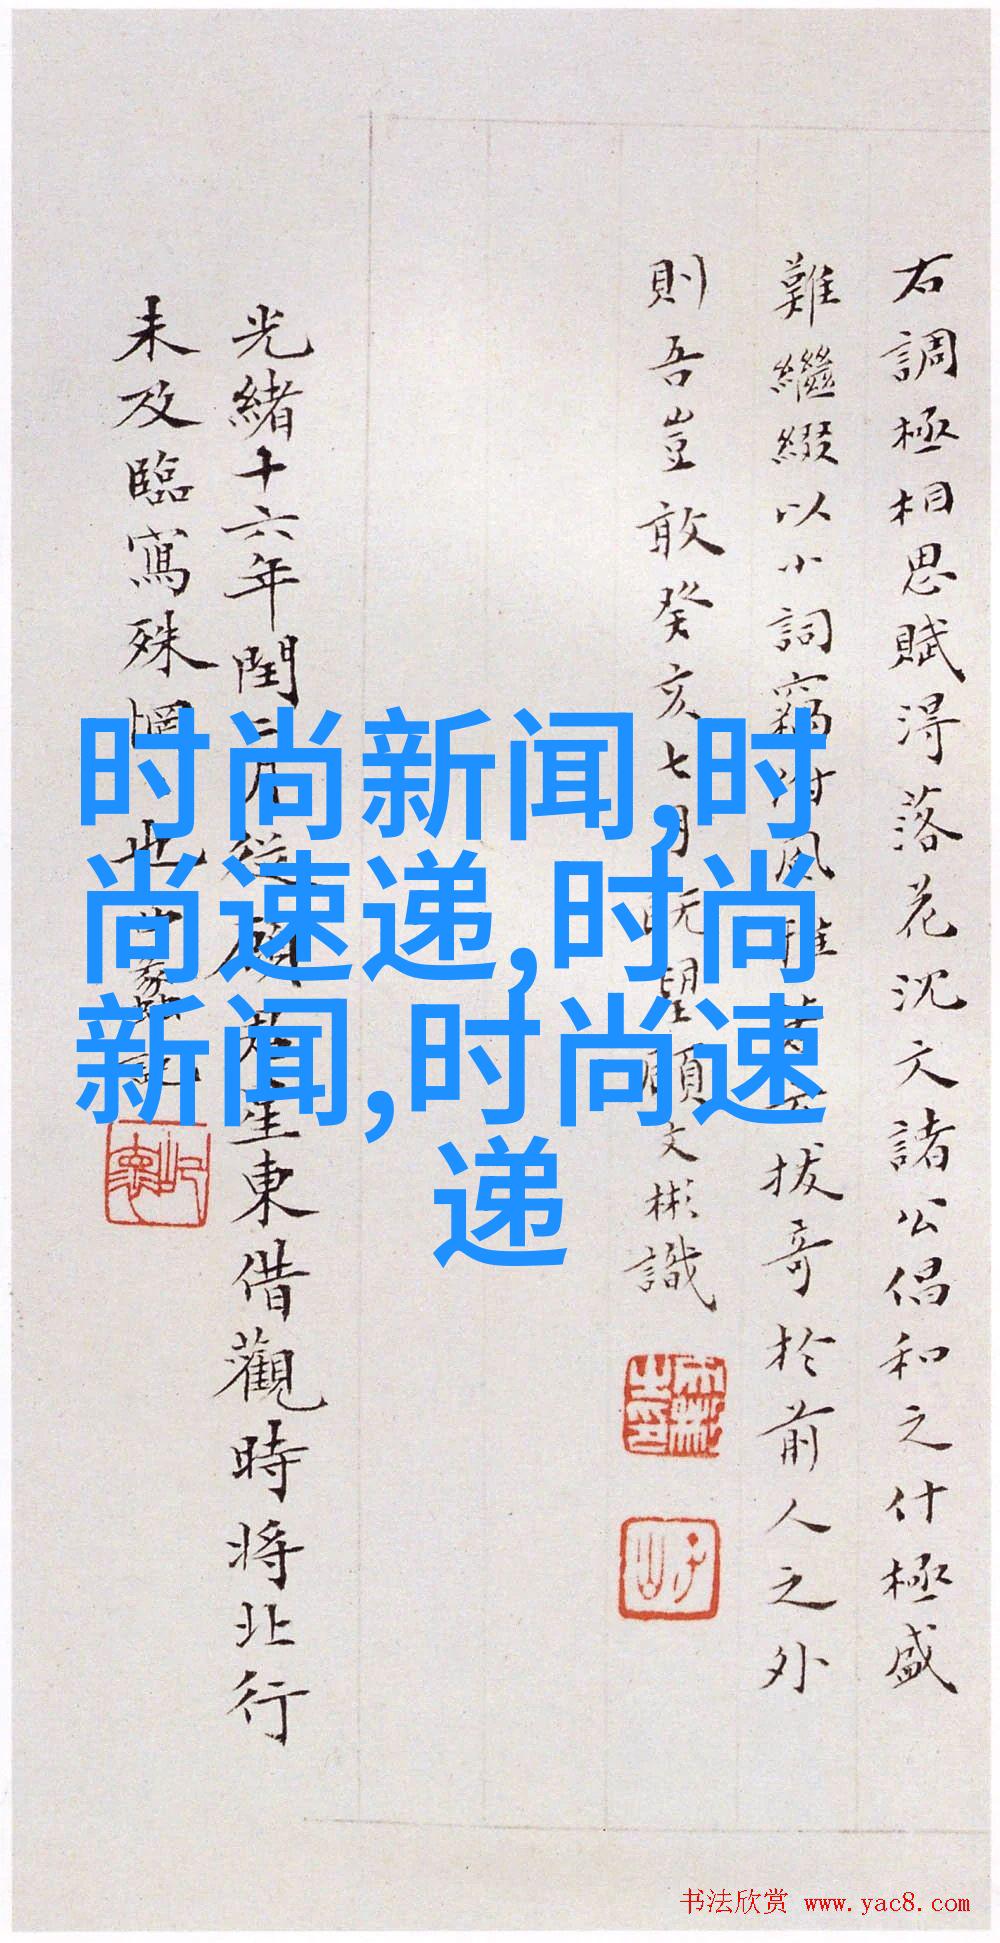 右調極相思賦得落花沈文諸公倡和之什極盛
難繼綴以小詞竊附風雅 拔奇於前人之外
則吾豈敢癸亥七月既望顧文彬識
光緒十六年閏二月從顧 生東借觀時将北行
未及臨寫殊 也 記
时尚新闻,时
尚速递,时尚
新闻,时尚速
递
书法欣赏 www.yac8.com